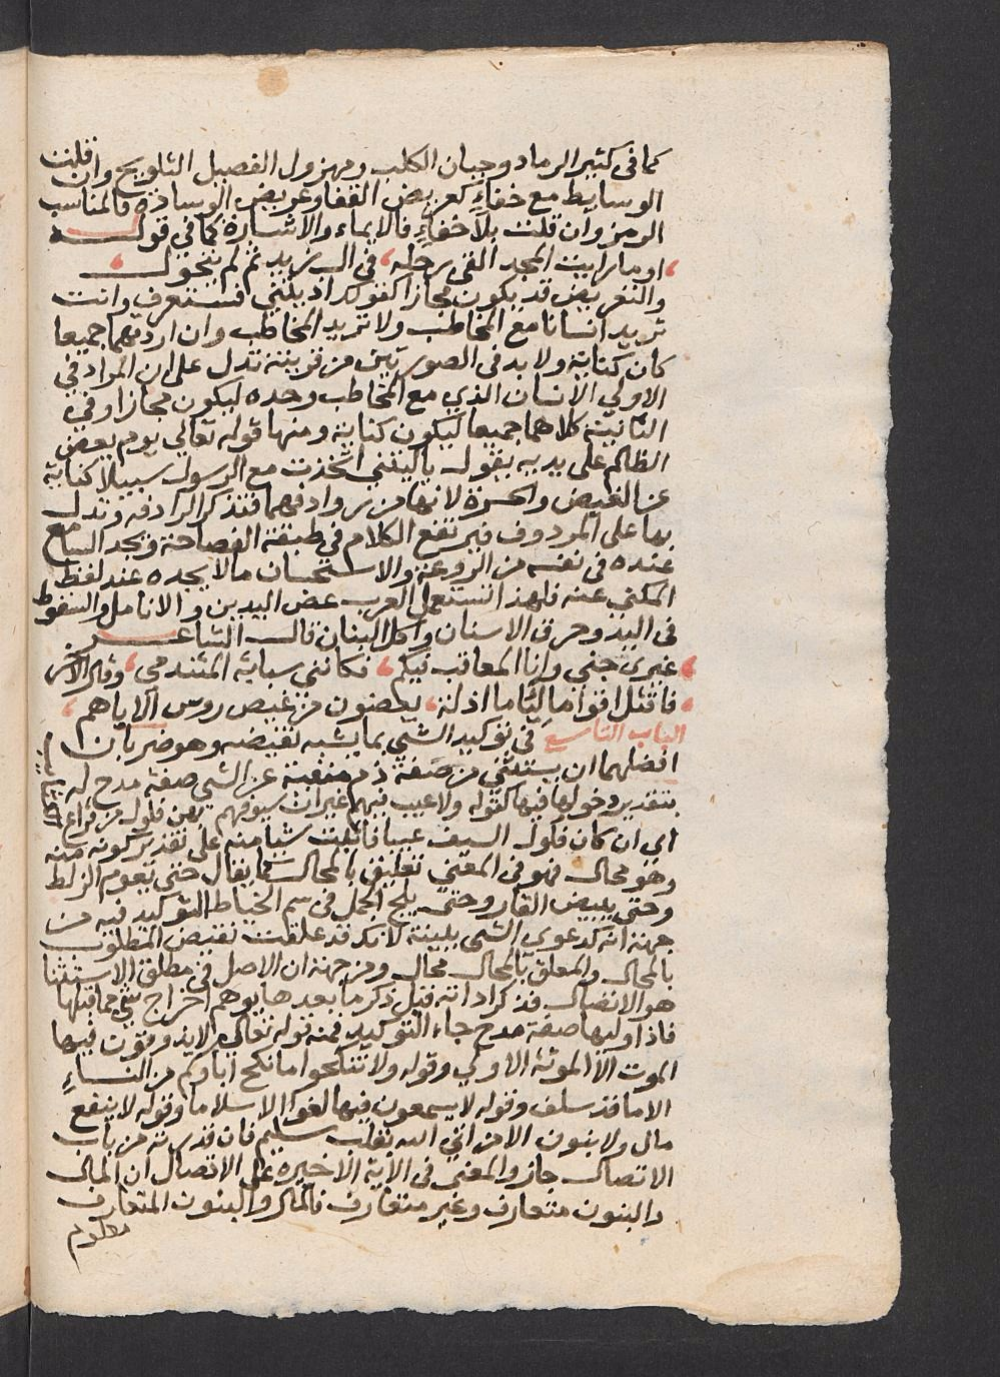 كما في كثير الرماد وجبان الكلب ومهزول الفصيل التلويح وان قلت
الوسايط مع خفاءٍ كعريض القفا وعريض الوسادة فالمناسب
الرمز وان قلت بلا خفاءٍ فالايماء والاشارة كما في قوله
او ما رايت المجد القى رحله في ال يزيد ثم لم يتحول
والتعريض قد يكون مجازا كقولك اذيتني فستعرف وانت
تريد انسانا مع المخاطب ولا تريد المخاطب وان اردتهما جميعا
كان كناية ولا بد في الصورتين من قرينة تدل على ان المراد في
الاولي الانسان الذي مع المخاطب وحده ليكون مجازا وفي
الثانية كلاهما جميعا ليكون كناية ومنها قوله تعالي يوم يعض
الظالم على يديه يقول ياليتني اتخذت مع الرسول سبيلا كناية
عن الغيض والحسرة لانها من روادفهما فتذكر الرادفة وتدل
بها على المردوف فيرتفع الكلام في طبقة الفصاحة ويجد السامع
عنده في نفسه من الروعة والاستحسان مالا يجده عند لفظ
المكني عنه فلهذا تستعمل العرب عض اليدين والانامل والسقوط
في اليد وحرق الاسنان واكل البنان قال الشاعر
غيري جني وانا المعاقب فيكم فكانني سبابة المتندم وقال الاخر
فاقتل اقواما لِيًاما اذلة يعضون من غيض روس الاباهم
الباب التاسع في توكيد الشي بما يشبه نقيضه وهو ضربان
افضلهما ان يستثني من صفة ذم منفية عن الشي صفة مدح له
بتقدير دخولها فيها كقوله ولا عيب فيهم غير ان سيوفهم بهن فلول من قراع الكتايب
اي ان كان فلول السيف عيبا فاثبت شيا منه على تقدير كونه منه
وهو محال فهو في المعني تعليق بالمحال كما يقال حتى يعوم الزلط
وحتى يبيض القار وحتى يلج الجمل في سم الخياط التوكيد فيه من
جهة انه كدعوي الشي ببينة لانك قد علقت نقيض المطلوب
بالمحال والمعلق بالمحال محال ومن جهة ان الاصل في مطلق الاستثنا
هو الاتصال فذكر اداته قبل ذكر ما بعدها يوهم اخراج شي مما قبلها
فاذا وليها صفة مدح جاء التوكيد فمنه قوله تعالى لا يذوقون فيها
الموت الا الموتة الاولي وقوله ولا تنكحوا ما نكح اباوكم من النساءِ
الا ما قد سلف وقوله لا يسمعون فيها لغوا الا سلاما وقوله لا ينفع
مال ولا بنون الا من اتي الله بقلب سليم فان قدرته من باب
الاتصال جاز والمعني في الاية الاخيرة على الاتصال ان المال
والبنون متعارف وغير متعارف فالمال والبنون المتعارف
معلوم